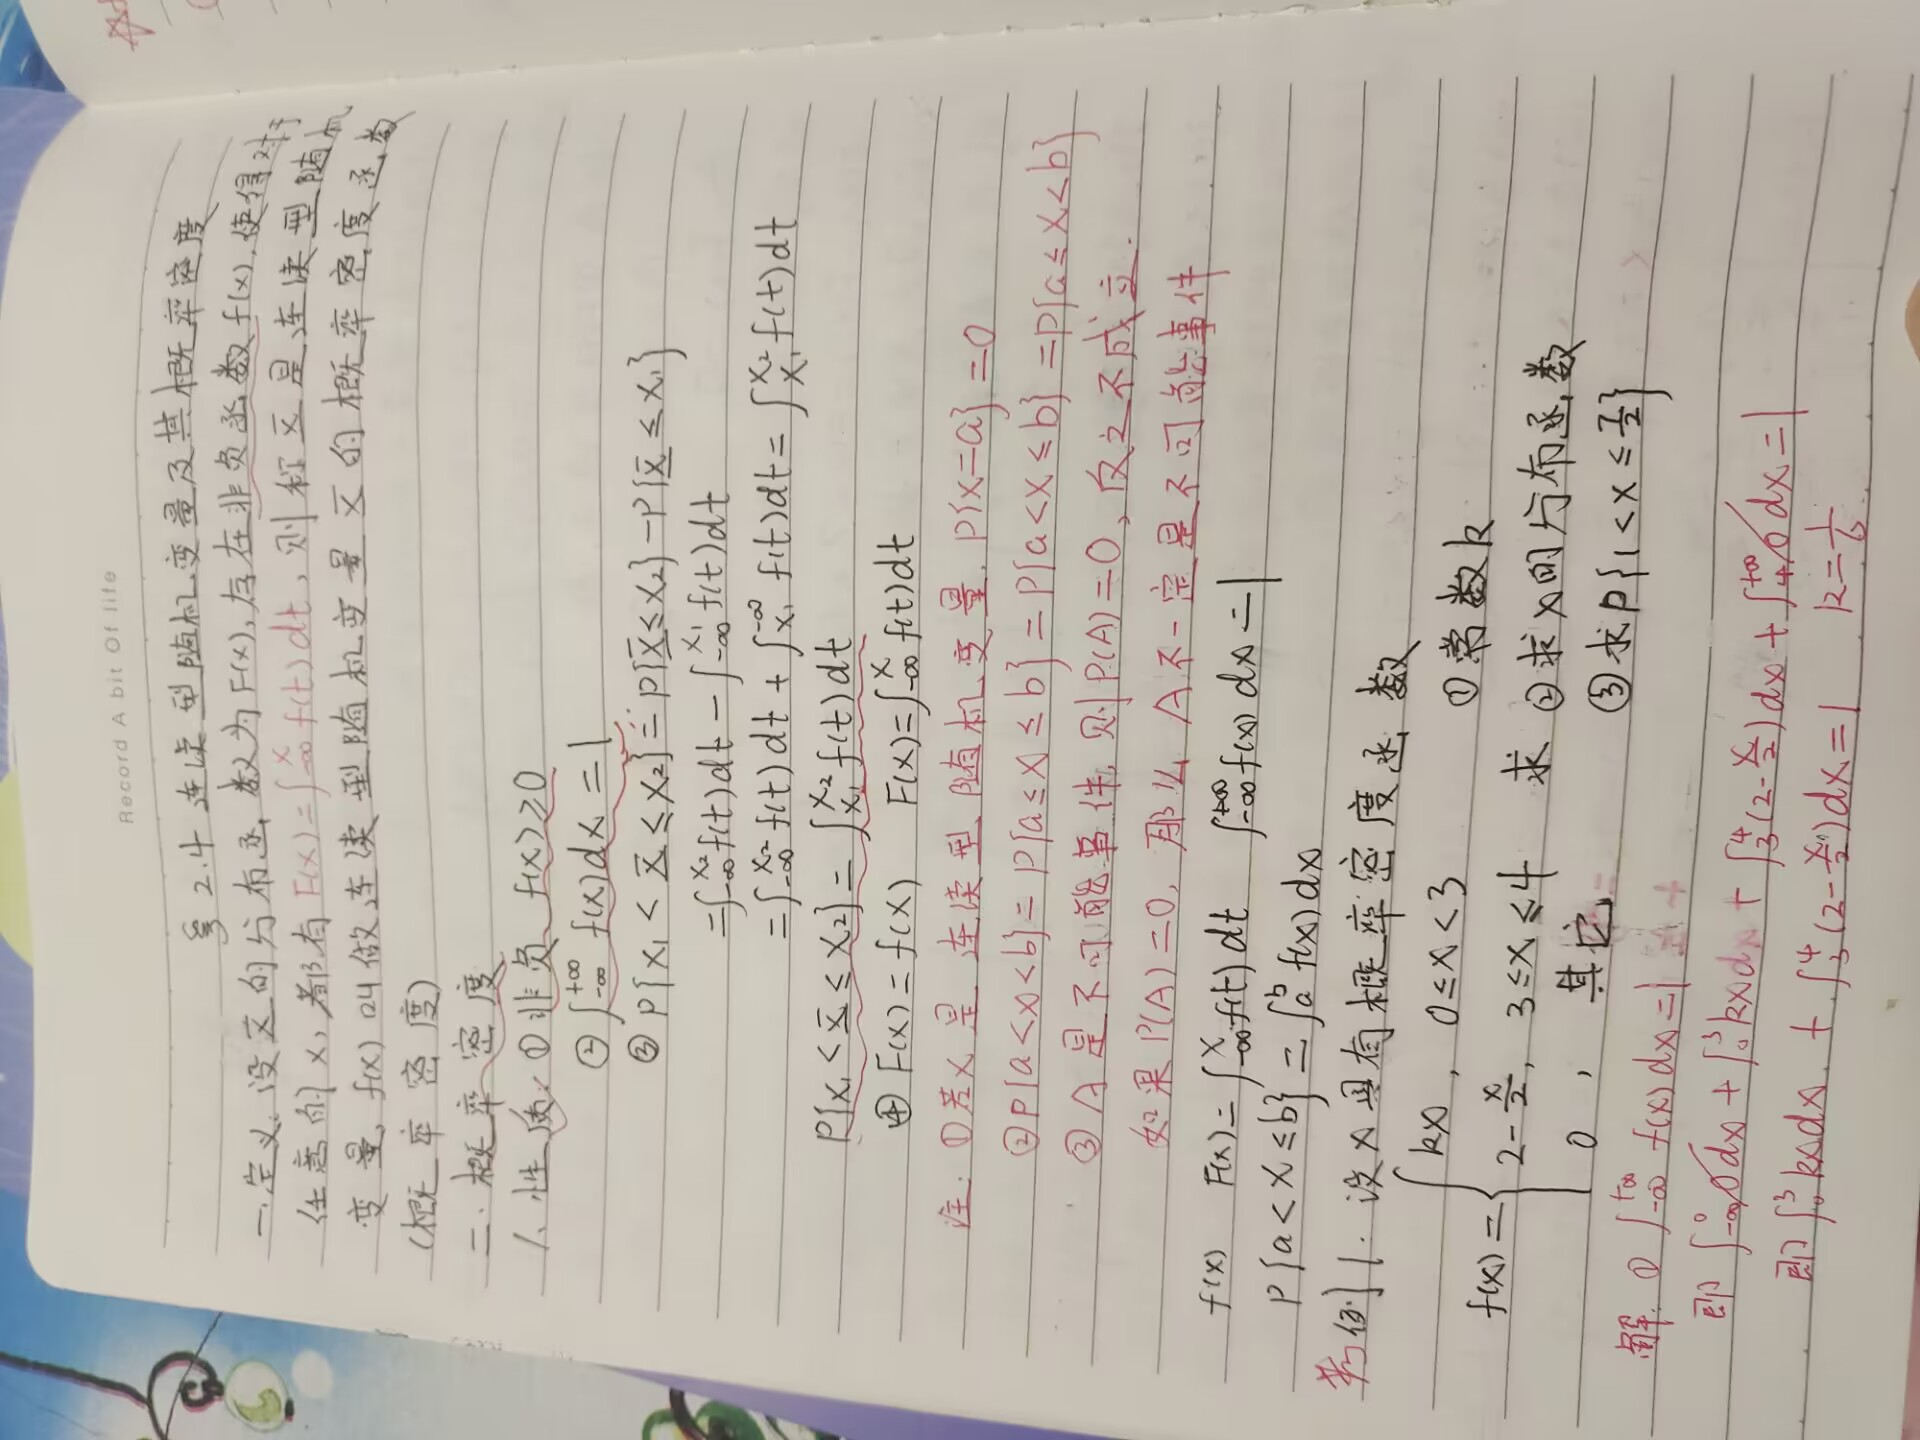 Record A bit Of life
§2.4 连续型随机变量及其概率密度
一.定义.设X的分布函数为F(x),存在非负函数f(x),使得对于
任意的x,都有F(x)=∫_{-∞}^{x} f(t)dt,则称X是连续型随机
变量,f(x)叫做连续型随机变量X的概率密度函数
(概率密度)
二.概率密度
1、性质:①非负 f(x)≥0
②∫_{-∞}^{+∞} f(x)dx=1
③P{x₁<X≤x₂}=P{X≤x₂}-P{X≤x₁}
=∫_{-∞}^{x₂}f(t)dt-∫_{-∞}^{x₁}f(t)dt
=∫_{-∞}^{x₂}f(t)dt+∫_{x₁}^{-∞}f(t)dt=∫_{x₁}^{x₂}f(t)dt
P{x₁<X≤x₂}=∫_{x₁}^{x₂}f(t)dt
④F'(x)=f(x) F(x)=∫_{-∞}^{x}f(t)dt
注:①若X是连续型随机变量,P{X=a}=0
②P{a<X<b}=P{a≤X≤b}=P{a<X≤b}=P{a≤X<b}
③A是不可能事件,则P(A)=0,反之不成立.
如果P(A)=0,那么A不一定是不可能事件
f(x) F(x)=∫_{-∞}^{x}f(t)dt ∫_{-∞}^{+∞}f(x)dx=1
P{a<X≤b}=∫_{a}^{b}f(x)dx
例1.设X具有概率密度函数
f(x)={kx, 0≤x<3 ①常数k
2-x/2, 3≤x≤4 求 ②求X的分布函数
0, 其它 ③求P{1<X≤7/2}
解:①∫_{-∞}^{+∞}f(x)dx=1
即∫_{-∞}^{0}0dx+∫_{0}^{3}kxdx+∫_{3}^{4}(2-x/2)dx+∫_{4}^{+∞}0dx=1
即∫_{0}^{3}kxdx+∫_{3}^{4}(2-x/2)dx=1 k=1/6